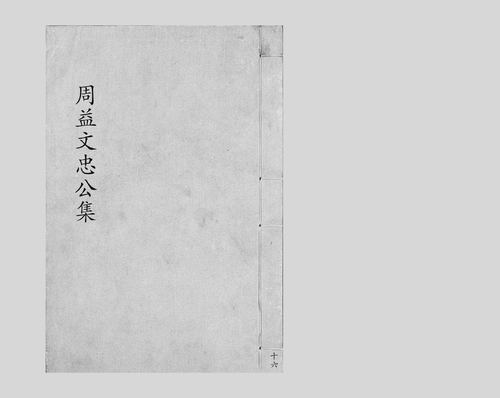 周益文忠公集
十六